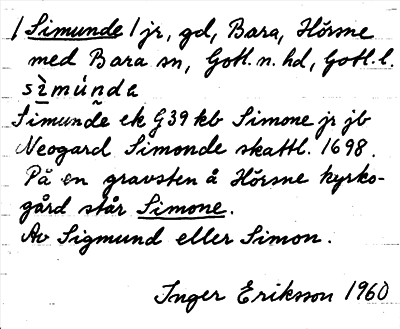 / Simunde / jr, gd, Bara, Hörsne
med Bara sn, Gotl. n. hd, Gotl. l.
sìmúnda
Simunde ek G39 kb Simone jr jb
Neogard Simonde skattl. 1698.
På en gravsten å Hörsne kyrko-
gård står Simone.
Av Sigmund eller Simon.
Inger Eriksson 1960